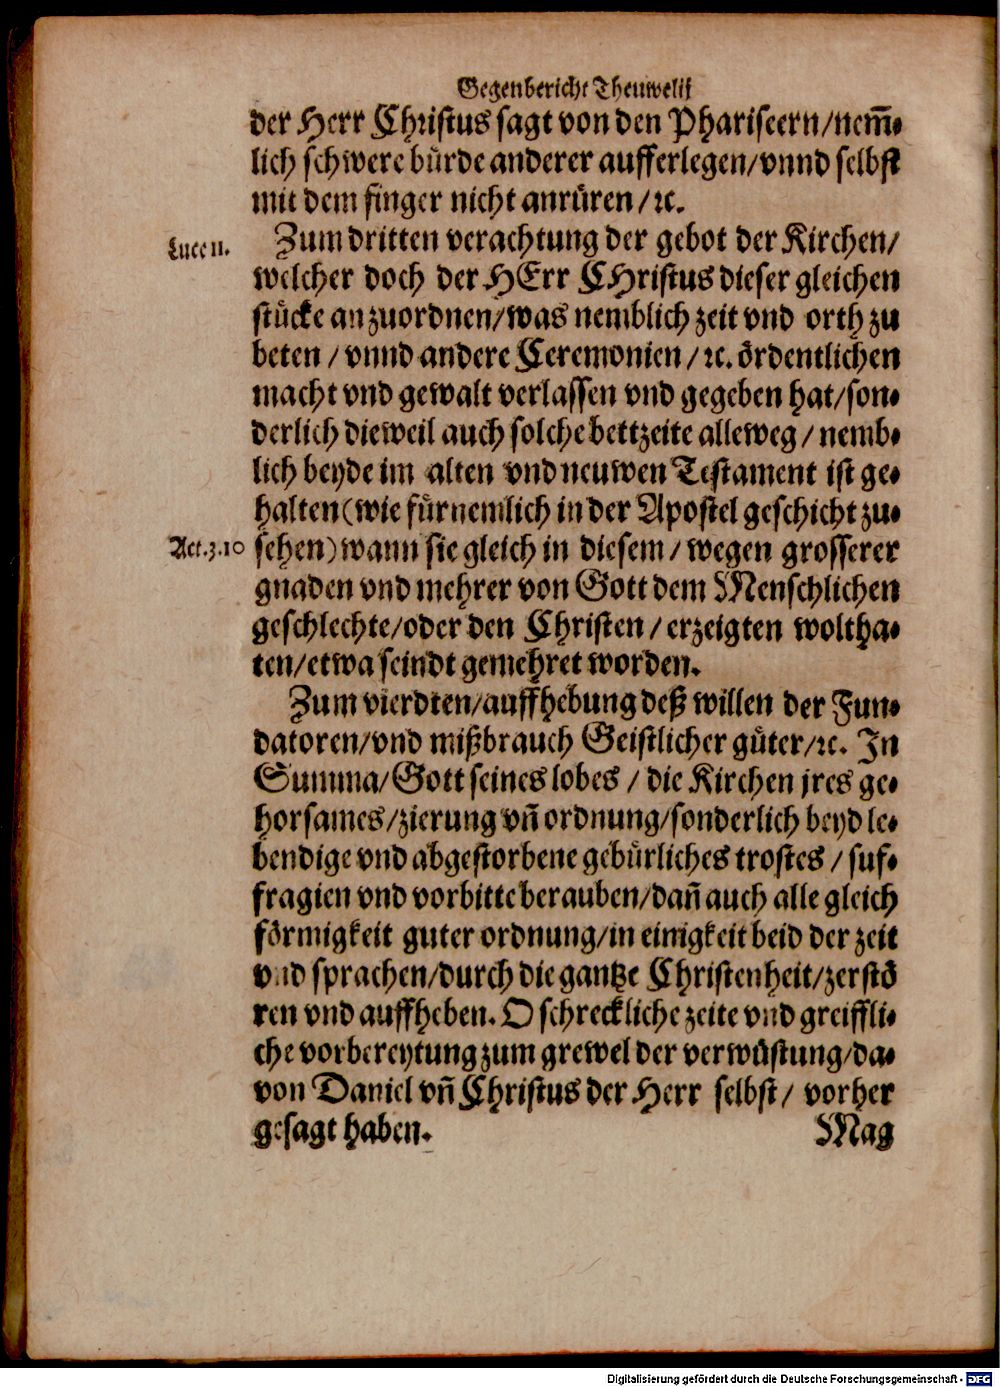 Gegenbericht Theuwelisch
der Herr Christus sagt von den Phariseern/nem̃-
lich schwere bürde anderer aufferlegen/vnnd selbst
mit dem finger nicht anrüren/ꝛc.
Luce 11.
Zum dritten verachtung der gebot der Kirchen/
welcher doch der HErr CHristus dieser gleichen
stücke anzuordnen/was nemblich zeit vnd orth zu
beten / vnnd andere Ceremonien/ꝛc. ördentlichen
macht vnd gewalt verlassen vnd gegeben hat/son-
derlich dieweil auch solche bettzeite alleweg/ nemb-
lich beyde im alten vnd neuwen Testament ist ge-
halten (wie fürnemlich in der Apostel geschicht zu-
Act.3.10
sehen) wann sie gleich in diesem/ wegen grosserer
gnaden vnd mehrer von Gott dem Menschlichen
geschlechte/oder den Christen/ erzeigten woltha-
ten/etwa seindt gemehret worden.
Zum vierdten/auffhebung deß willen der Fun-
datoren/vnd mißbrauch Geistlicher güter/ꝛc. In
Summa/Gott seines lobes / die Kirchen jres ge-
horsames/zierung vñ ordnung/sonderlich beyd le-
bendige vnd abgestorbene gebürliches trostes / suf-
fragien vnd vorbitte berauben/dañ auch alle gleich
förmigkeit guter ordnung/in einigkeit beid der zeit
vnd sprachen/durch die gantze Christenheit/zerstö
ren vnd auffheben. O schreckliche zeite vnd greiffli-
che vorbereytung zum grewel der verwüstung/da-
von Daniel vñ Christus der Herr selbst/ vorher
gesagt haben. Mag
Digitalisierung gefördert durch die Deutsche Forschungsgemeinschaft - DFG